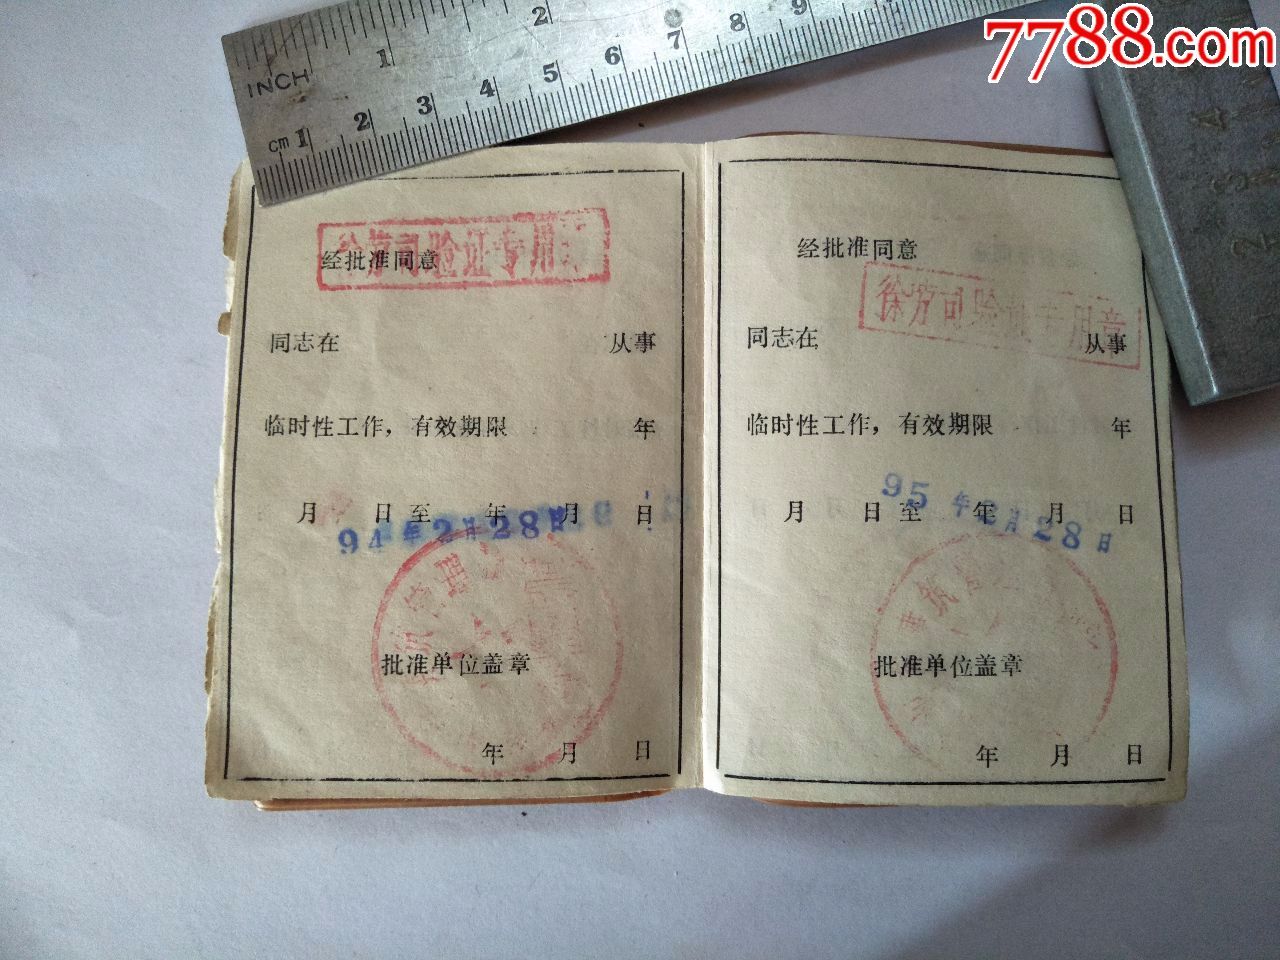 7788.com
INCH
1 2
cm 1 2 3 4 5 6 7 8 9
经批准同意
验证专用
同志在 从事
临时性工作，有效期限 年
月 日至 年 月 日
94年2月28日
管理
批准单位盖章
年 月 日
经批准同意
用章
同志在 从事
临时性工作，有效期限 年
月 日至 年 月 日
95年2月28日
建筑
批准单位盖章
年 月 日